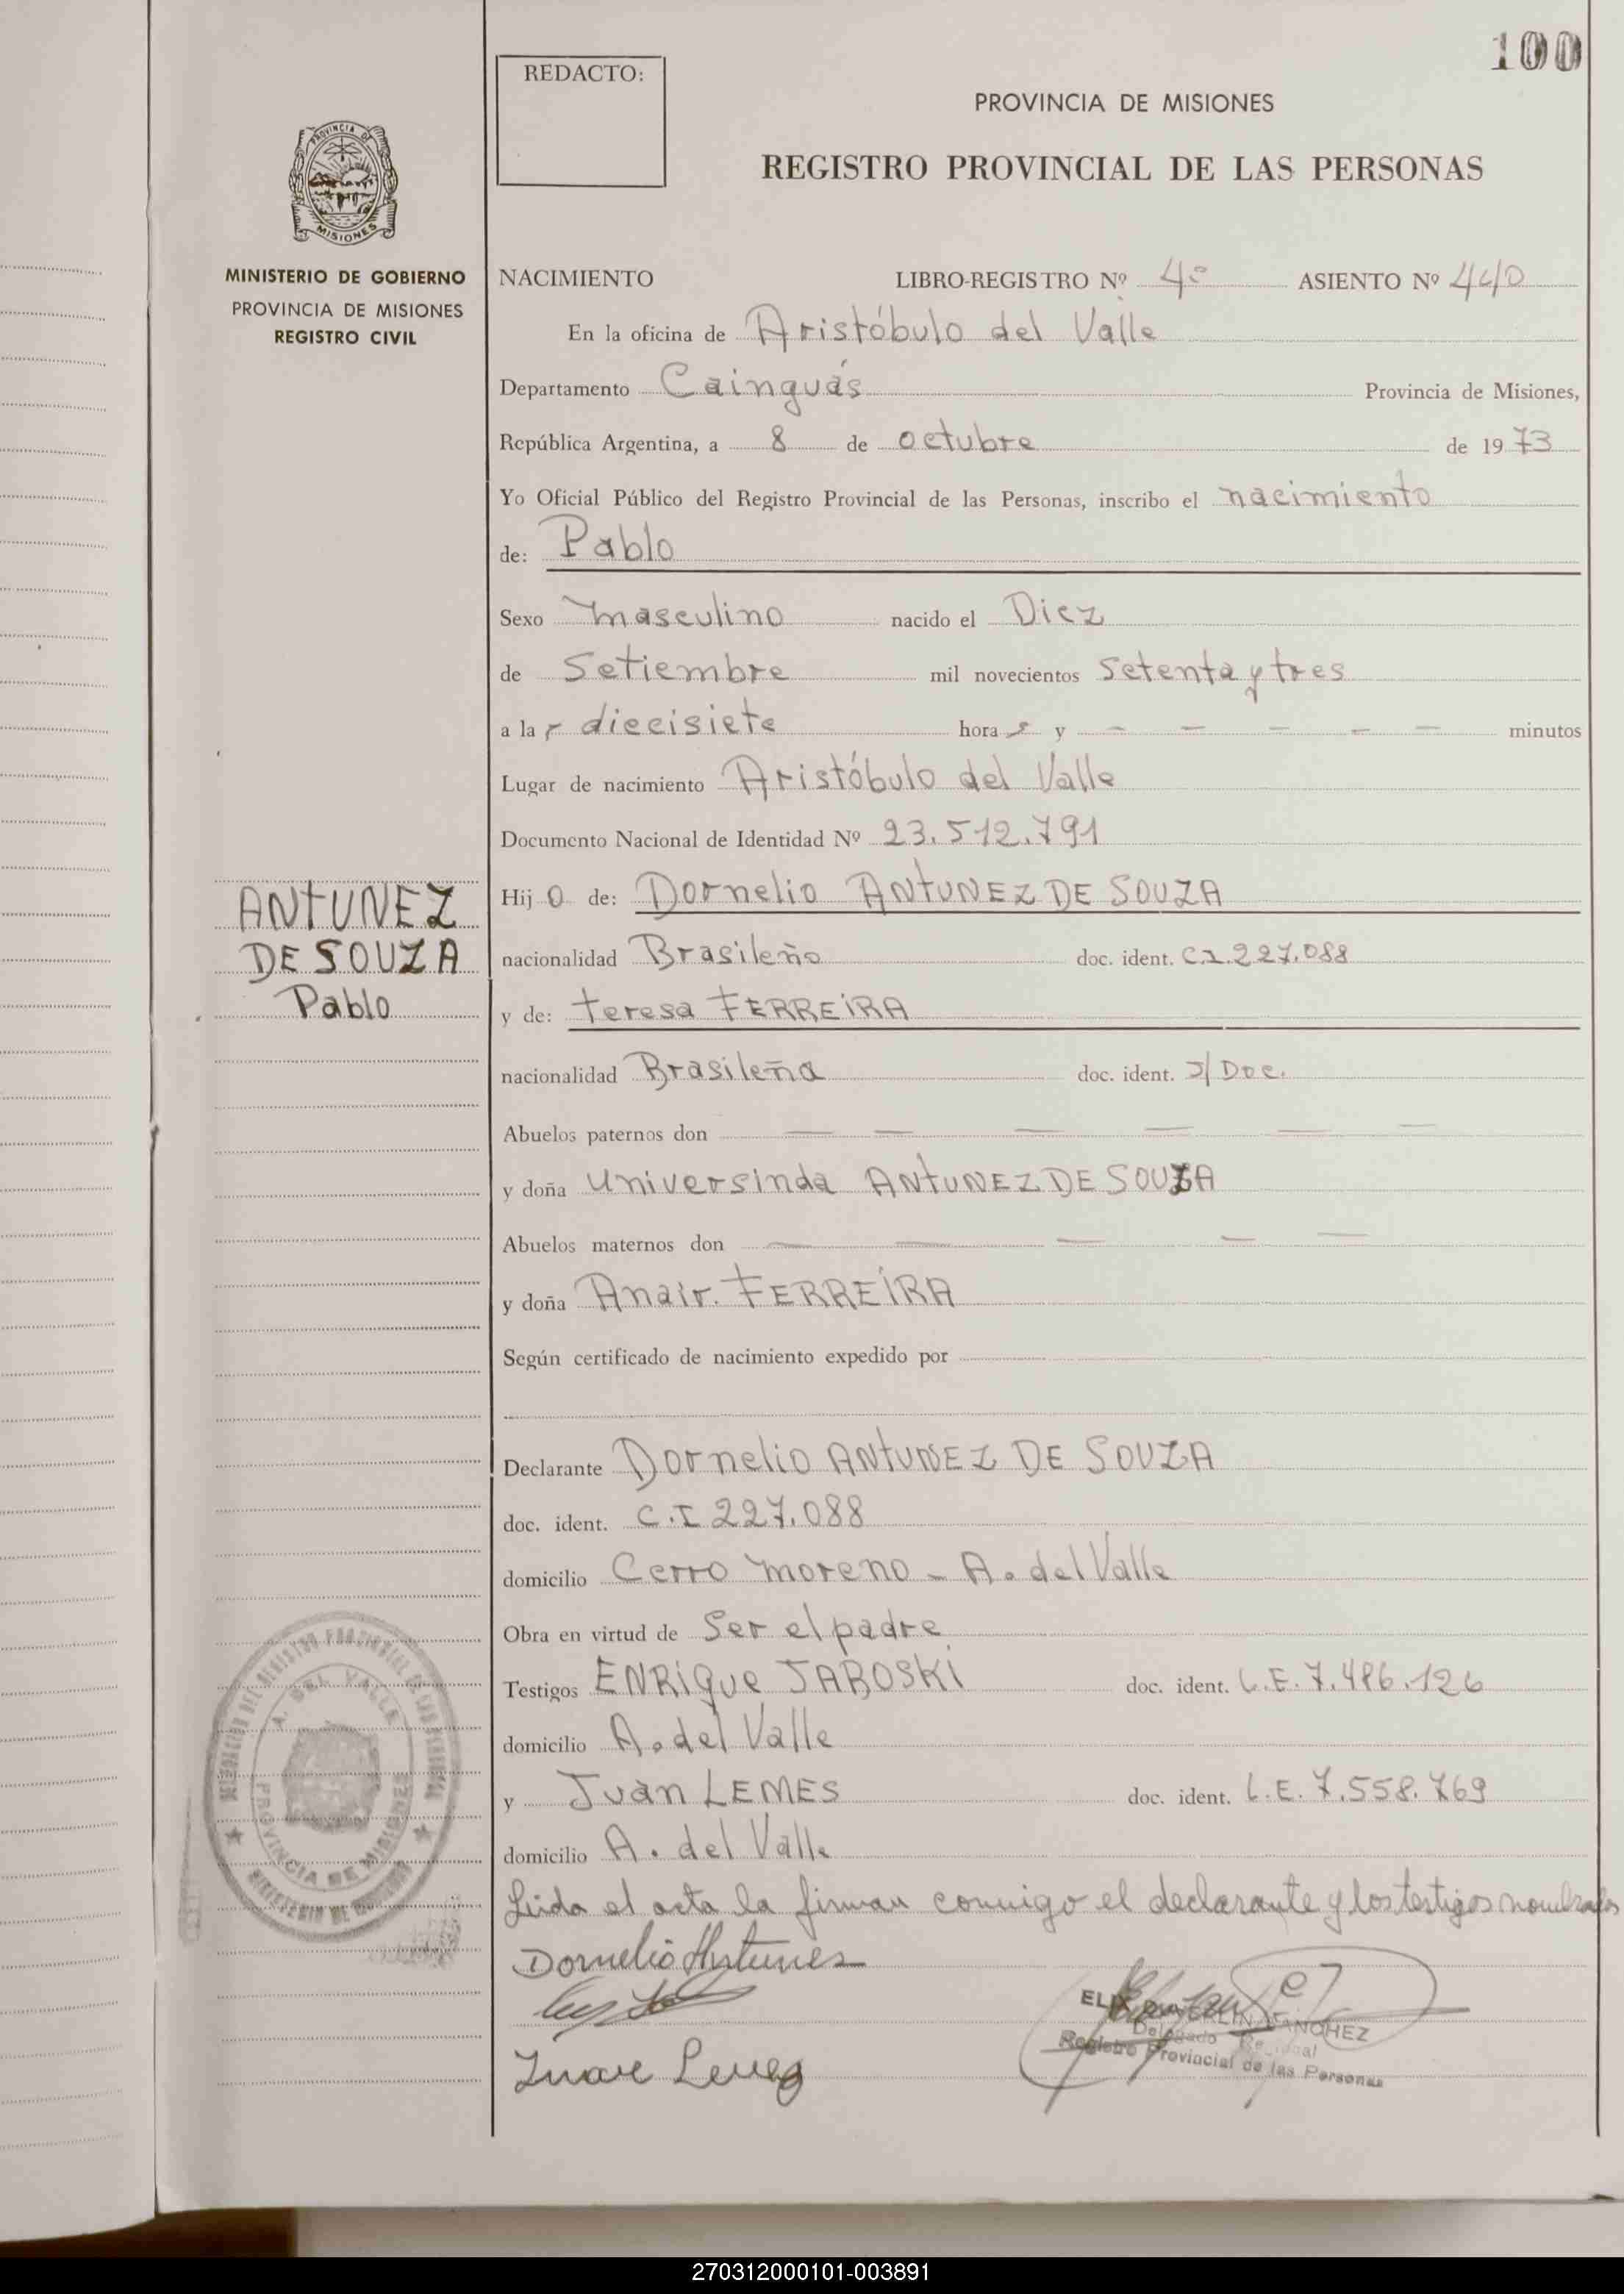 100
REDACTO:
PROVINCIA DE MISIONES
REGISTRO PROVINCIAL DE LAS PERSONAS
PROVINCIA DE
MISIONES
MINISTERIO DE GOBIERNO
PROVINCIA DE MISIONES
REGISTRO CIVIL
NACIMIENTO LIBRO-REGISTRO Nº 4º ASIENTO Nº 440
En la oficina de Aristóbulo del Valle
Departamento Cainguás Provincia de Misiones,
República Argentina, a 8 de octubre de 1973
Yo Oficial Público del Registro Provincial de las Personas, inscribo el nacimiento
de: Pablo
Sexo masculino nacido el Diez
de Setiembre mil novecientos setenta y tres
a la s diecisiete hora s y — — — — — minutos
Lugar de nacimiento Aristóbulo del Valle
Documento Nacional de Identidad Nº 23.512.791
ANTUNEZ
DE SOUZA
Pablo
Hij o de: Dornelio ANTUNEZ DE SOUZA
nacionalidad Brasileño doc. ident. C.I. 227.088
y de: Teresa FERREIRA
nacionalidad Brasileña doc. ident. S/Doc.
Abuelos paternos don — — — — — —
y doña Universinda ANTUNEZ DE SOUZA
Abuelos maternos don — — — — —
y doña Anair. FERREIRA
Según certificado de nacimiento expedido por
Declarante Dornelio ANTUNEZ DE SOUZA
doc. ident. C.I 227.088
domicilio Cerro moreno - A. del Valle
Obra en virtud de Ser el padre
Testigos ENRique JAROSKI doc. ident. L.E. 7.486.126
domicilio A. del Valle
y Juan LEMES doc. ident. L.E. 7.558.769
domicilio A. del Valle
Leida el acta la firman conmigo el declarante y los testigos nombrados
Dornelio Antunes
Juan Lemes
SANCHEZ
Delegado
Registro Provincial de las Personas
A. DEL VALLE
PROVINCIA DE MISIONES
270312000101-003891